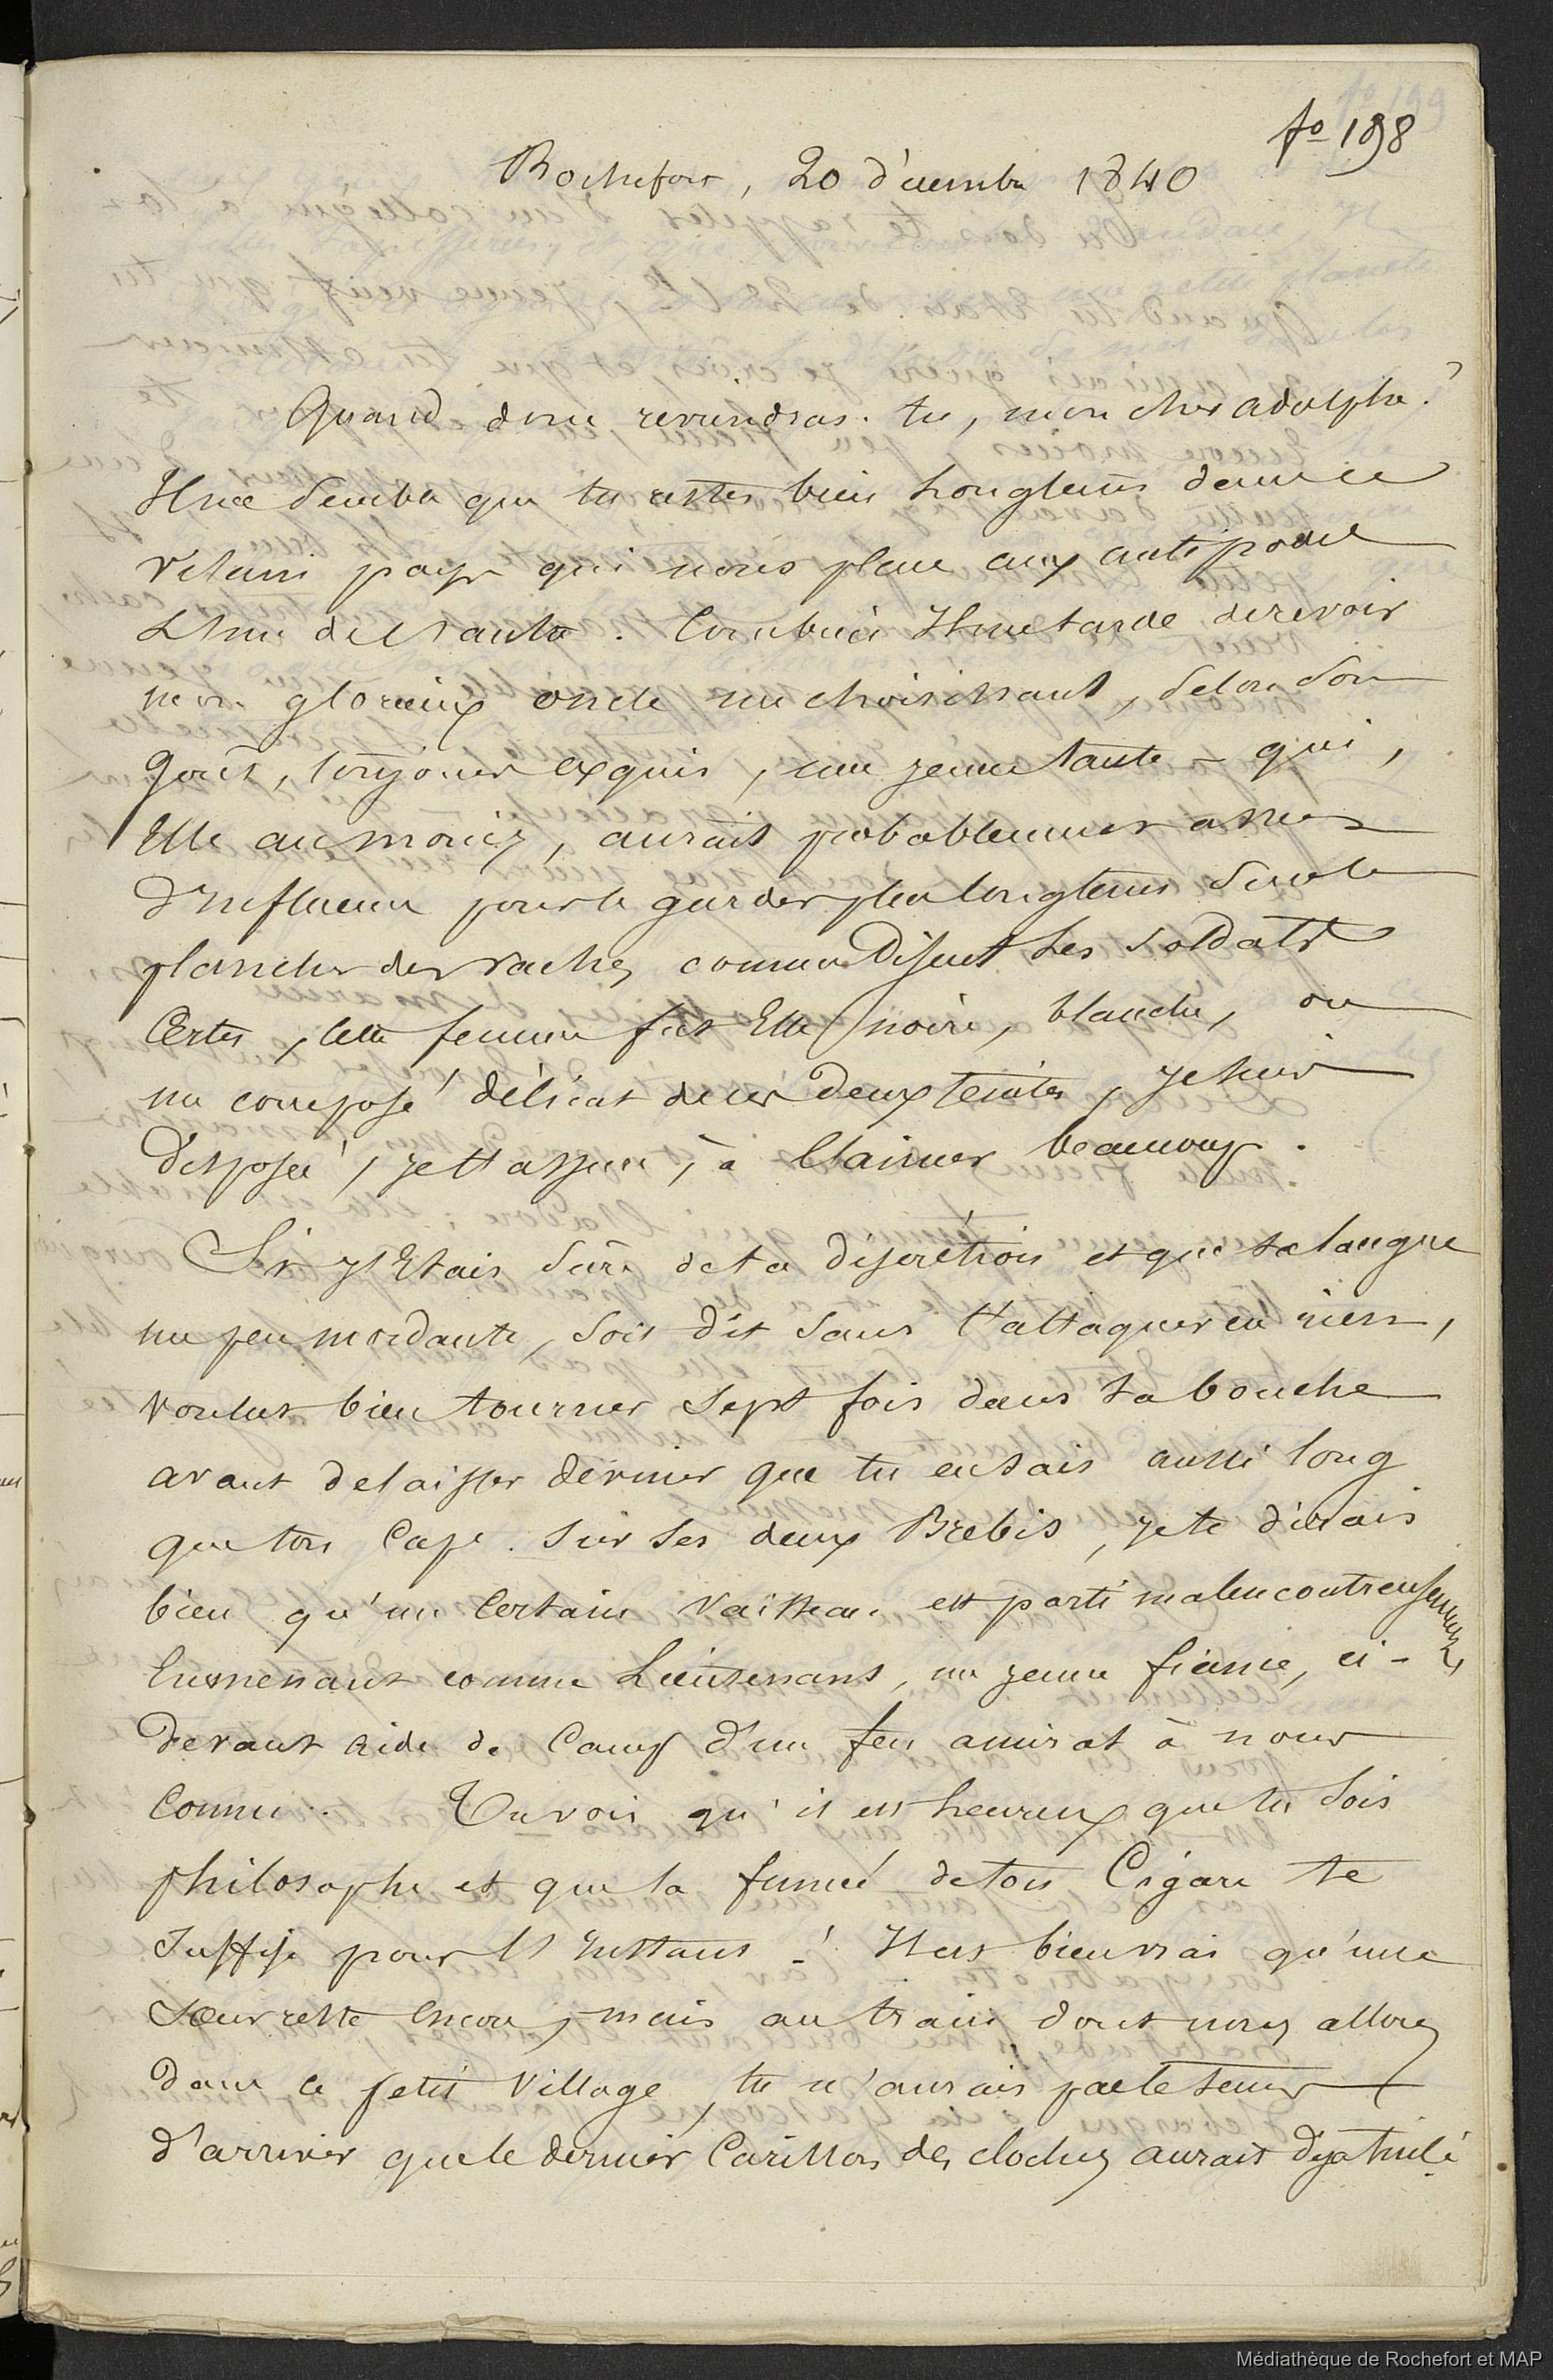 fo 198
Rochefort, 20 décembre 1840
Quand donc reviendras-tu, mon cher adolphe ?
Il me semble que tu restes bien longtems dans ce
vilain pays qui nous place aux antipodes
L'un de l'autre. Combien Il me tarde de revoir
mon glorieux oncle me choisissant, selon son
goût, toujours exquis, une jeune tante - qui,
Elle au moins, aurait probablement assez
d'Influence pour le garder plus longtems sur le
plancher des vaches comme disent les soldats
Certes, cette femme fut Elle noire, blanche, ou
un composé délicat de ces deux teintes, je suis
disposée, je t'assure, à l'aimer beaucoup.
Si j'Etais sûre de ta discrétion et que ta langue
un peu mordante, soit dit sans t'attaquer en rien,
voulut bien tourner sept fois dans ta bouche
avant de laisser deviner que tu en sais aussi long
que ton Cape. sur les deux Brebis, je te dirais
bien qu'un Certain vaisseau est parti malencontreusement
Emmenant comme Lieutenant, un jeune fiancé, ci-
devant aide de Camp d'un feu amiral à nous
connu. Tu vois qu'il est heureux que tu sois
philosophe et que la fumée de ton Cigare te
suffise pour l'Instant ! Il est bien vrai qu'une
sœur reste Encore, mais au train dont nous allons
dans ce petit Village, tu n'aurais pas le tems
d'arriver que le dernier Carillon des cloches aurait déja tinté
Médiathèque de Rochefort et MAP